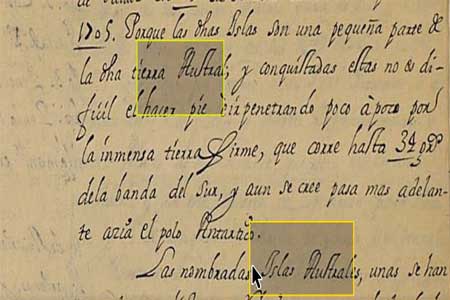 1705. Porque las dhas Islas son una pequeña parte de
la dha tierra Austral, y conquistadas estas no es di-
fiçil el hacer pie è ir penetrando poco à poco por
la inmensa tierra firme, que corre hasta 34 grs
dela banda del Sur, y aun se cree pasa mas adelan-
te azia el polo Antartico.
Las nombradas Islas Australes, unas se han